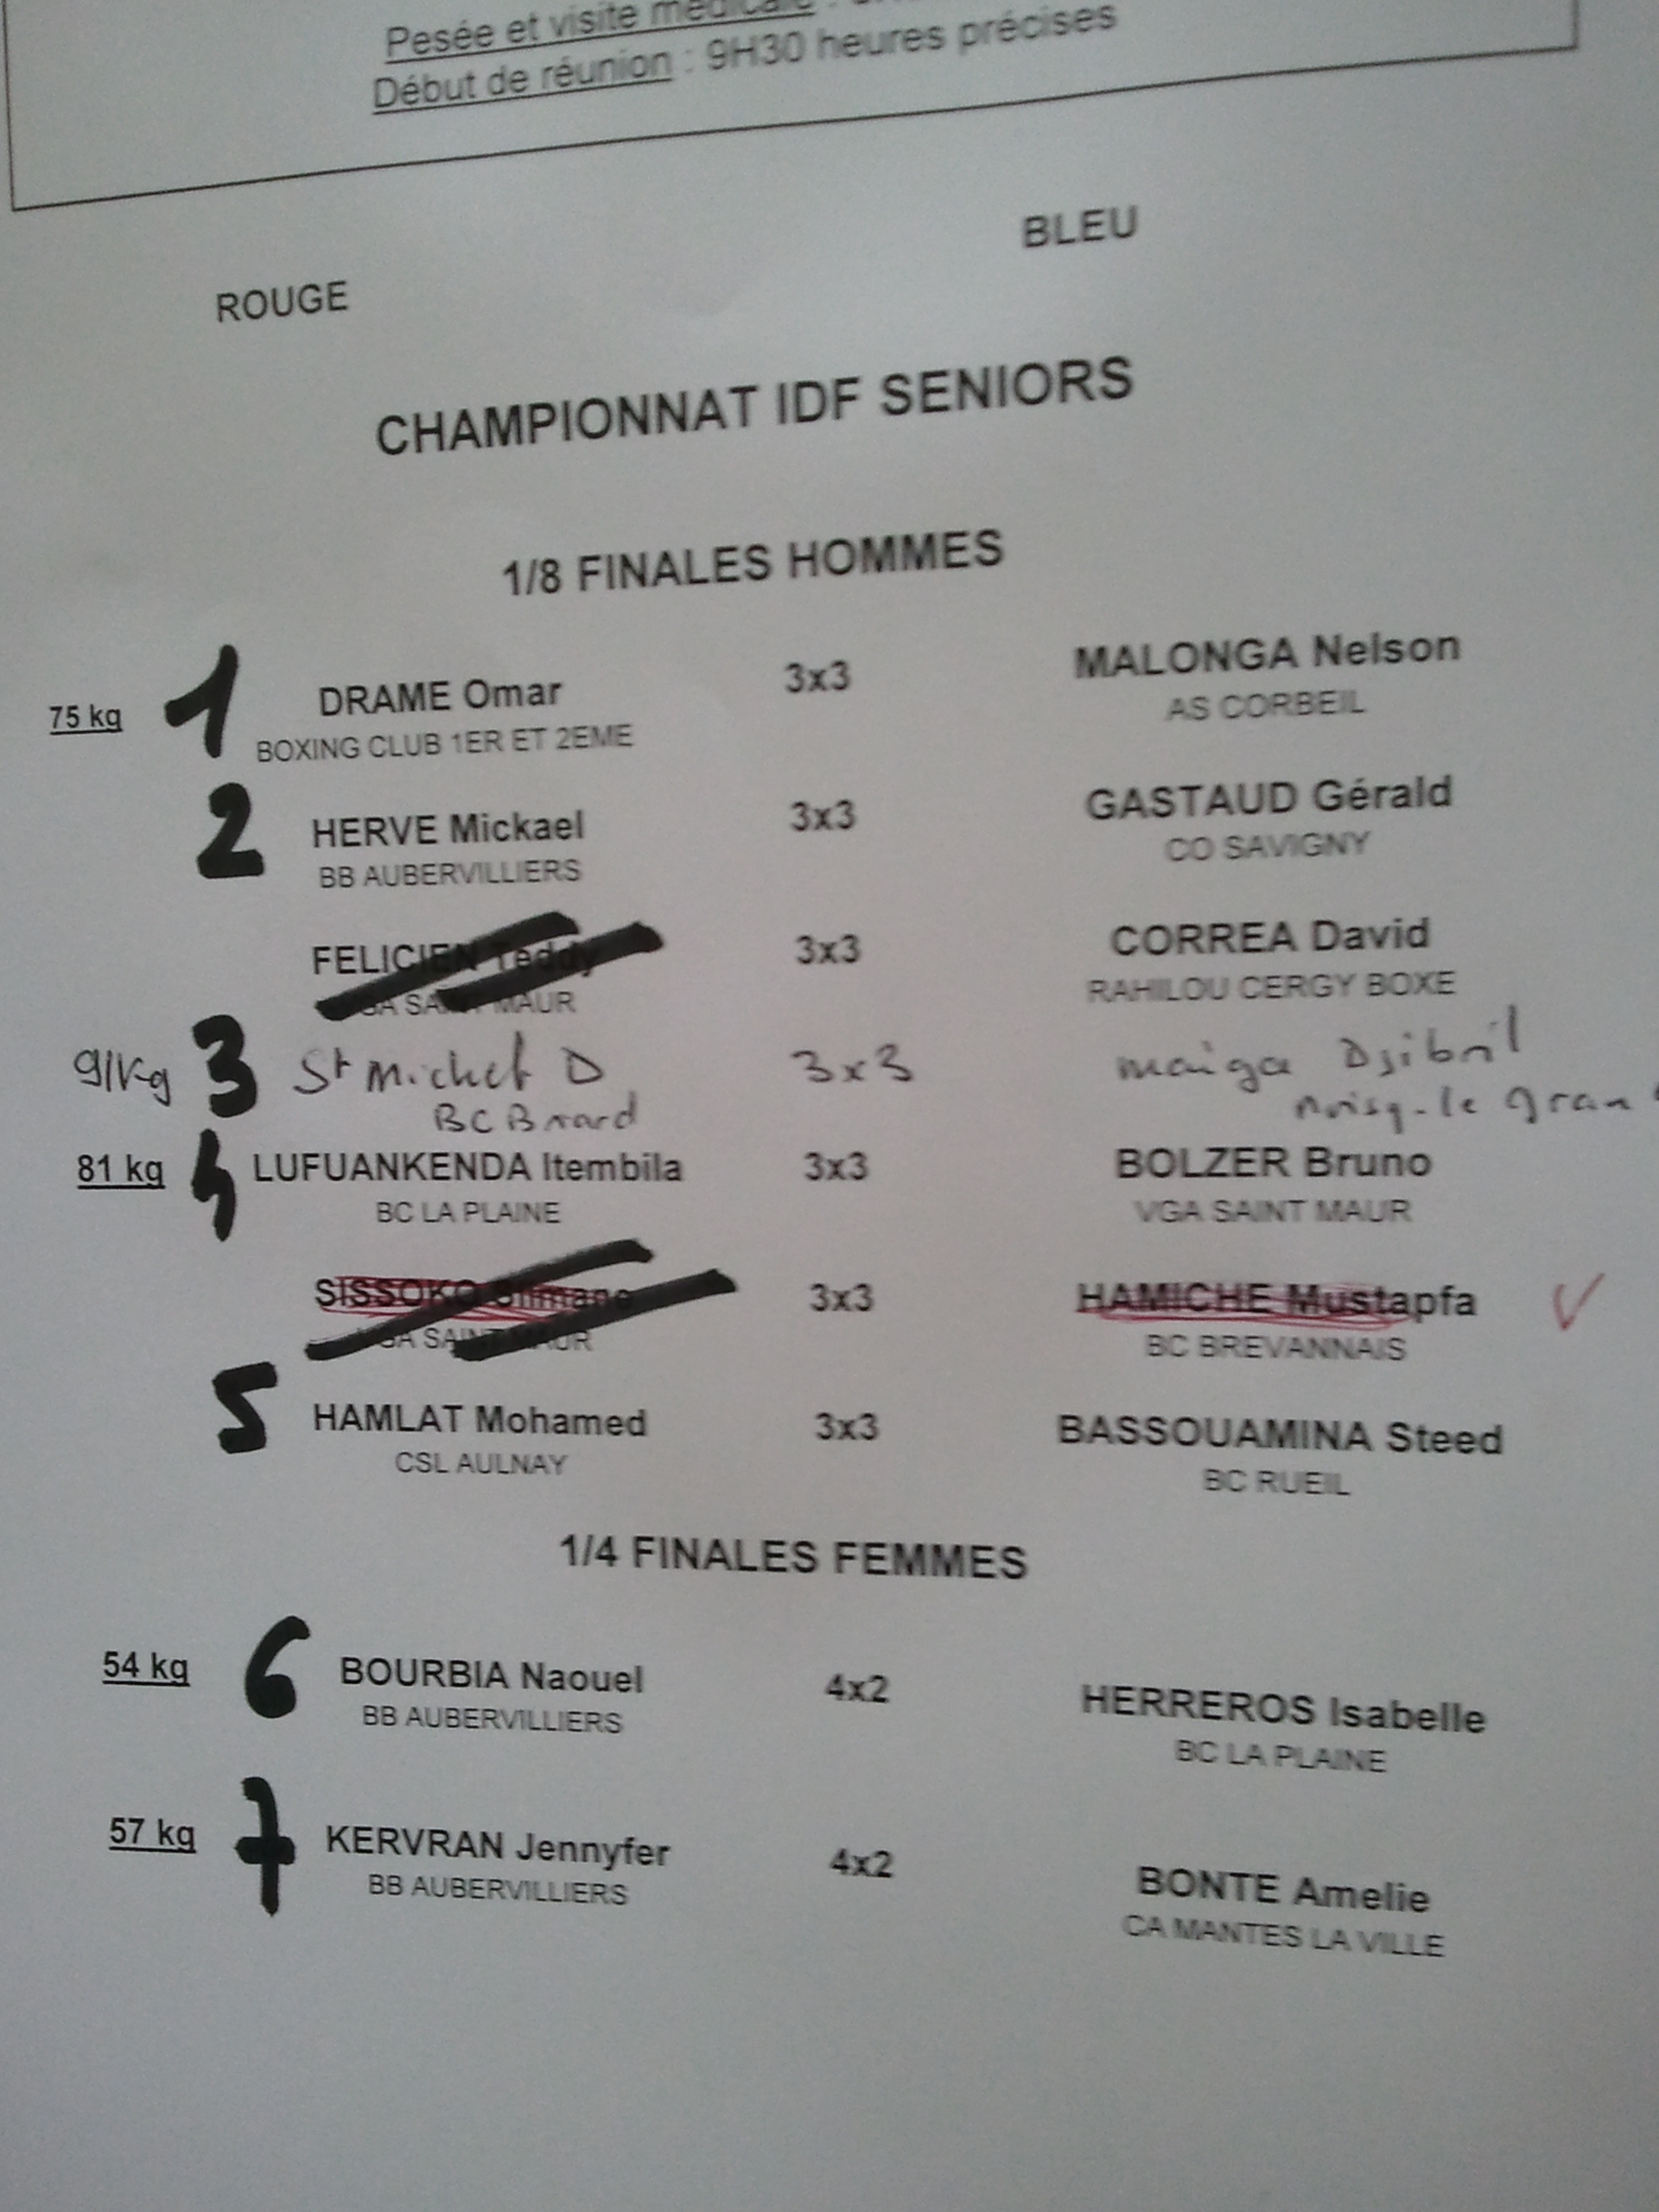 Pesée et visite médicale :
Début de réunion : 9H30 heures précises
BLEU
ROUGE
CHAMPIONNAT IDF SENIORS
1/8 FINALES HOMMES
75 kg 1 DRAME Omar 3x3 MALONGA Nelson
BOXING CLUB 1ER ET 2EME AS CORBEIL
2 HERVE Mickael 3x3 GASTAUD Gérald
BB AUBERVILLIERS CO SAVIGNY
FELICIEN Teddy 3x3 CORREA David
VGA SAINT MAUR RAHILOU CERGY BOXE
91Kg 3 St Michel D 3x3 maiga Djibril
BC noisy-le gran
81 kg 4 LUFUANKENDA Itembila 3x3 BOLZER Bruno
BC LA PLAINE VGA SAINT MAUR
SISSOKO Slimane 3x3 HAMICHE Mustapfa
VGA SAINT MAUR BC BREVANNAIS
5 HAMLAT Mohamed 3x3 BASSOUAMINA Steed
CSL AULNAY BC RUEIL
1/4 FINALES FEMMES
54 kg 6 BOURBIA Naouel 4x2 HERREROS Isabelle
BB AUBERVILLIERS BC LA PLAINE
57 kg 7 KERVRAN Jennyfer 4x2 BONTE Amelie
BB AUBERVILLIERS CA MANTES LA VILLE